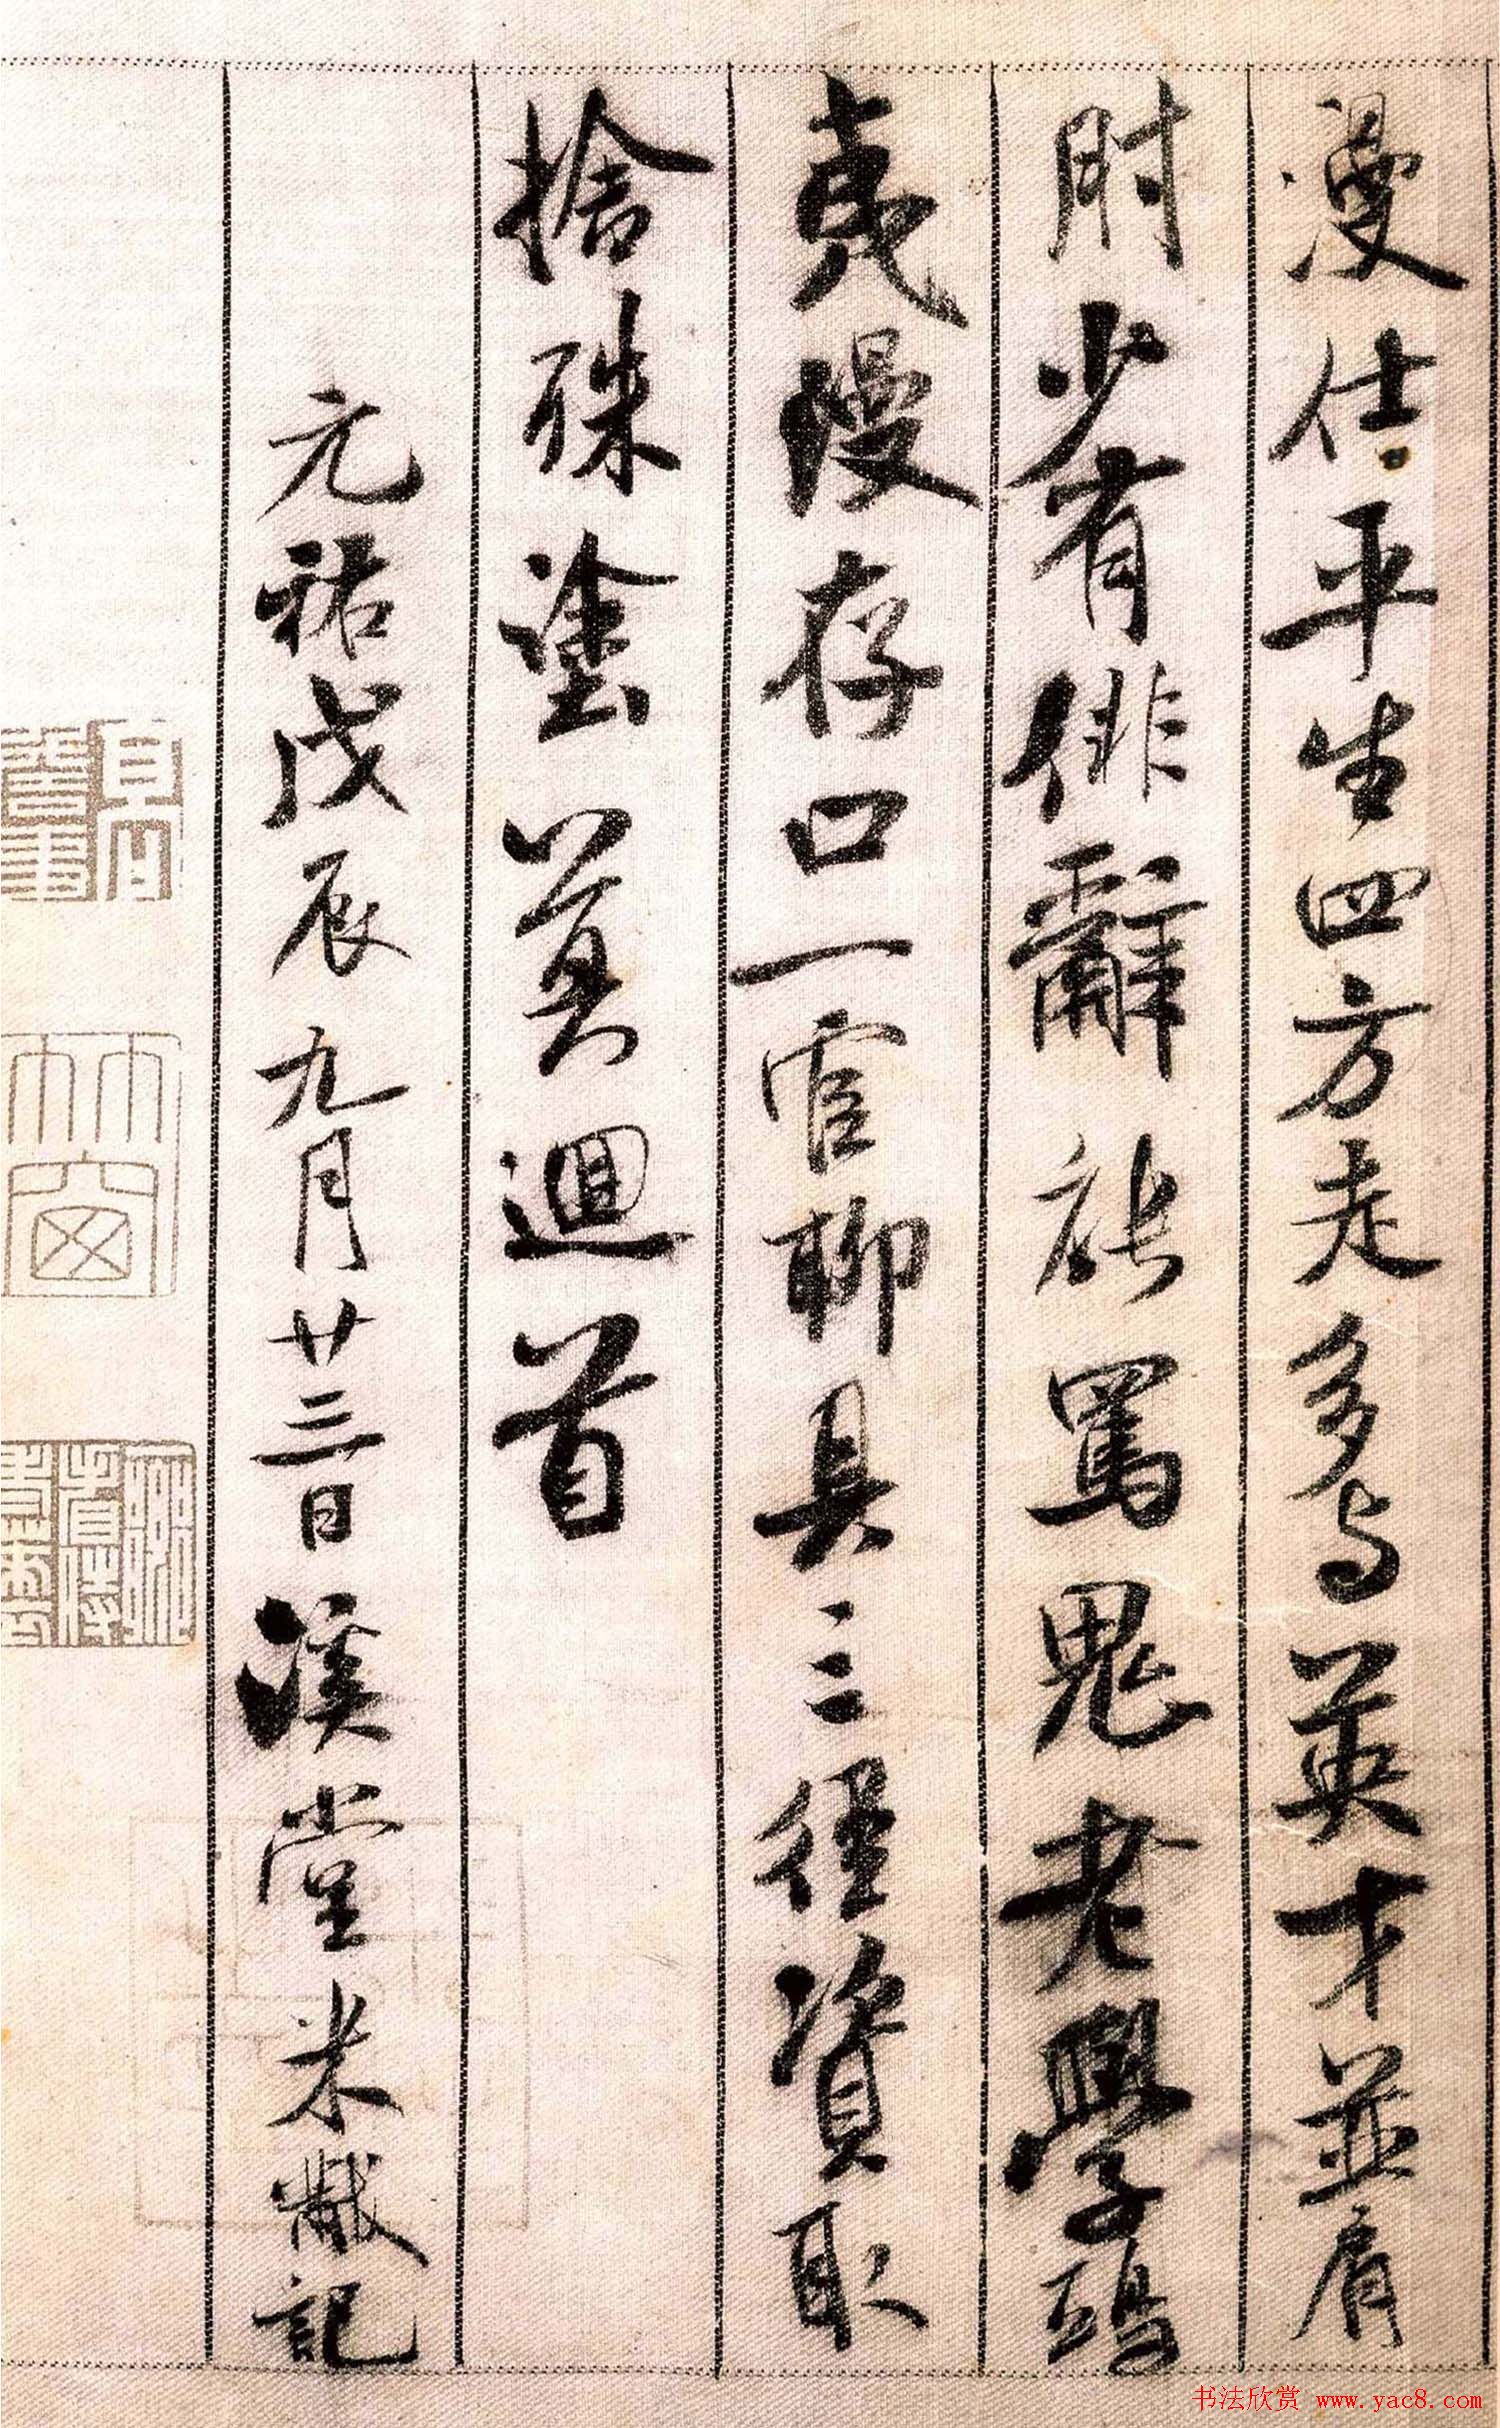 漫仕平生四方走多与英才並肩
肘少有俳辭能罵鬼老學鴟
夷漫存口一官聊具三徑資取
捨殊塗莫迴首
元祐戊辰九月廿三日溪堂米黻記
书法欣赏 www.yac8.com